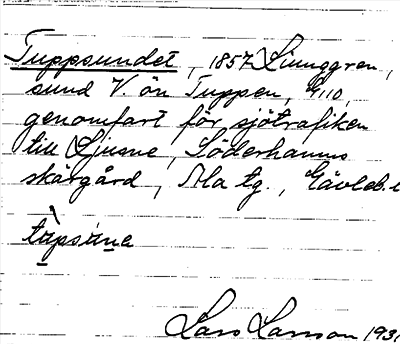 Tuppsundet, 1857 Ljunggren,
sund V. ön Tuppen, G:10,
genomfart för sjötrafiken
till Ljusne, Söderhamns
skärgård, Ala tg., Gävleb.l
tùpsúnə
Lars Larsson 193